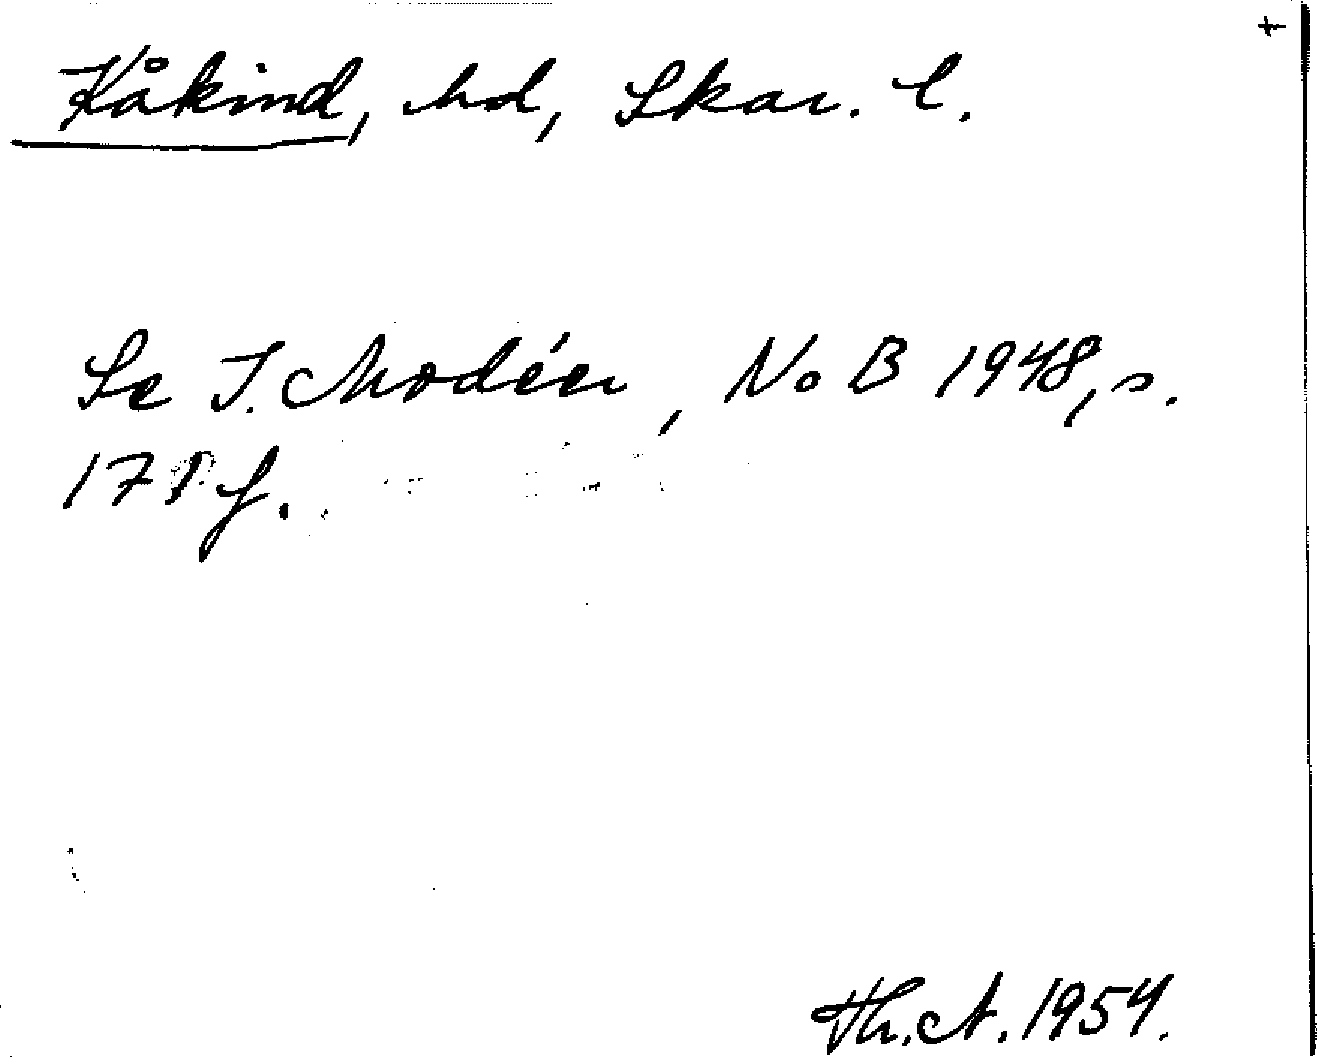 +
Kåkind, hd, Skar. l.
Se I. Modéer, NoB 1948, s.
171 f.
Th. A. 1954.